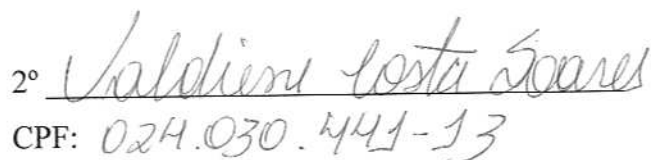 2º Valdiene Costa Soares
CPF: 024.030.441-13